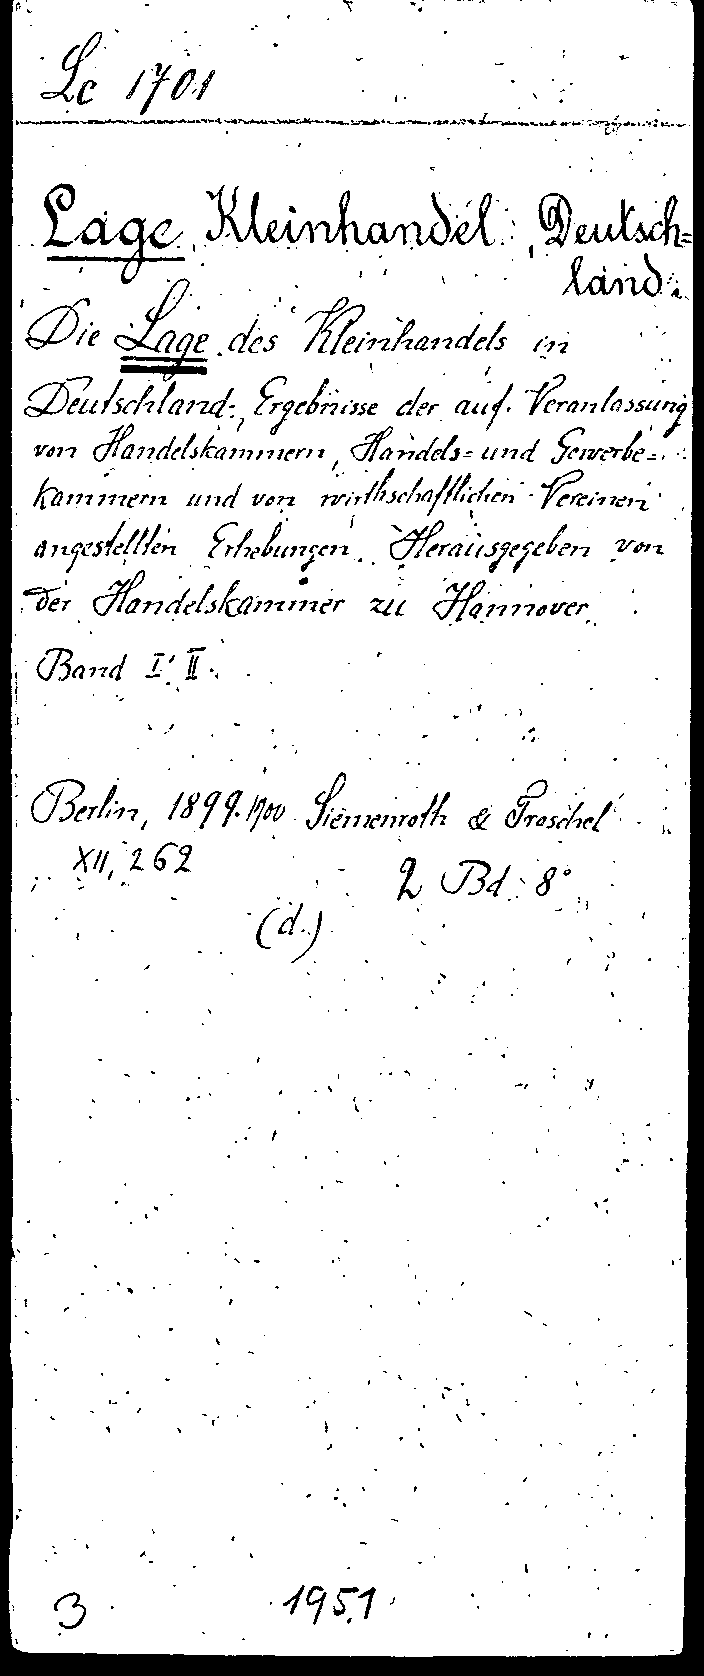 Lc 1701
Lage Kleinhandel, Deutsch=
land.
Die Lage des Kleinhandels in
Deutschland. Ergebnisse der auf Veranlassung
von Handelskammern, Handels= und Gewerbe=
kammern und von wirthschaftlichen Vereinen
angestellten Erhebungen. Herausgegeben von
der Handelskammer zu Hannover.
Band I. II.
Berlin, 1899.1900 Siemenroth & Troschel
XII, 262
2 Bd. 8°
(d.)
3 1951